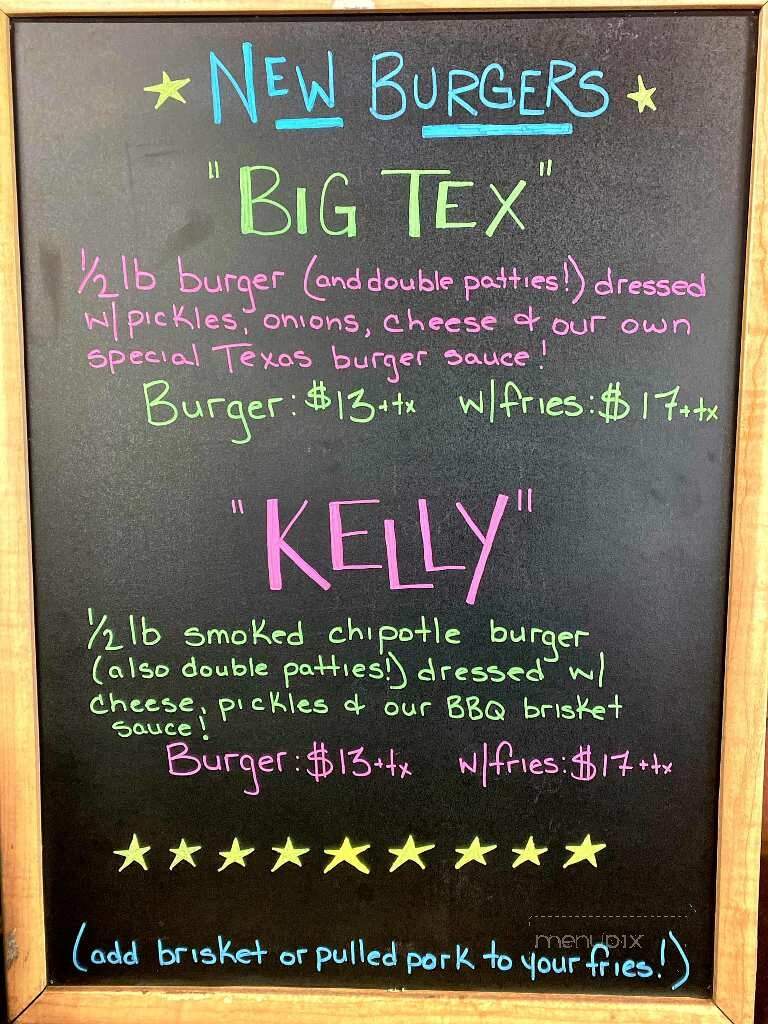 NEW BURGERS
"BIG TEX"
½ lb burger (and double patties!) dressed
w/ pickles, onions, cheese & our own
special Texas burger sauce!
Burger: $13+tx w/fries: $17+tx
"KELLY"
½ lb smoked chipotle burger
(also double patties!) dressed w/
cheese, pickles & our BBQ brisket
sauce!
Burger: $13+tx w/fries: $17+tx
menupix
(add brisket or pulled pork to your fries!)